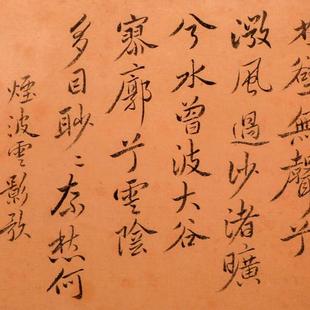 壑無聲兮
風過沙渚曠
兮水曾波大谷
寥廓兮雲陰
多目眇眇奈愁何
煙波雲影歌